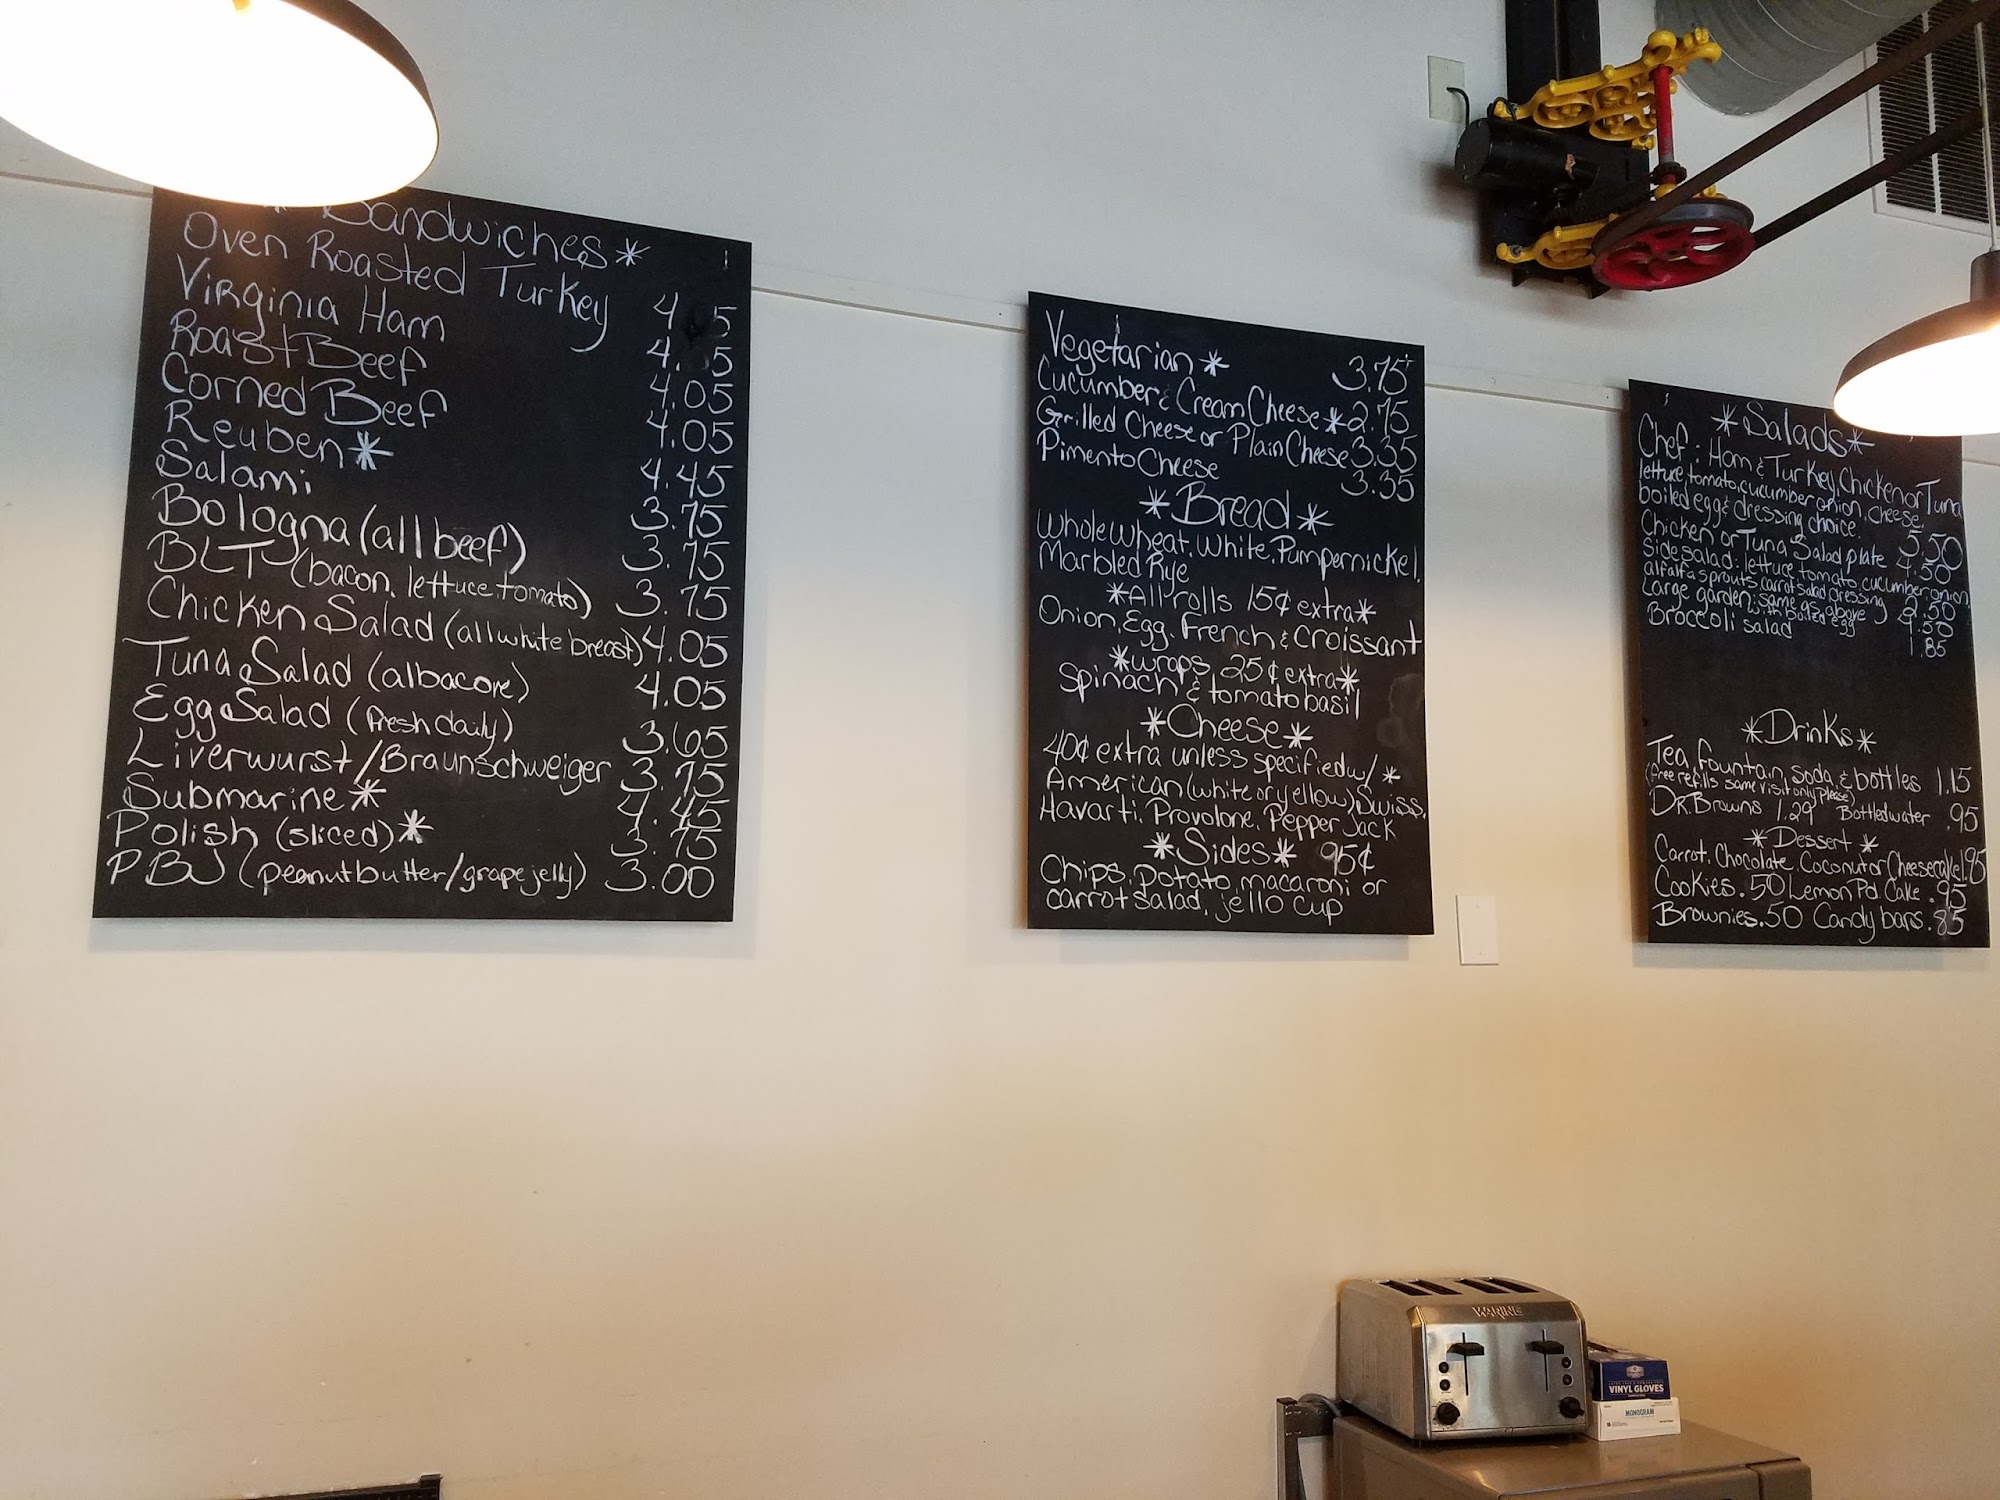 * Sandwiches *
Oven Roasted Turkey 4.05
Virginia Ham 4.05
Roast Beef 4.05
Corned Beef 4.05
Reuben * 4.45
Salami 3.75
Bologna (all beef) 3.75
BLT (bacon, lettuce, tomato) 3.75
Chicken Salad (all white breast) 4.05
Tuna Salad (albacore) 4.05
Egg Salad (fresh daily) 3.65
Liverwurst/Braunschweiger 3.75
Submarine * 4.45
Polish (sliced) * 3.75
PBJ (peanut butter/grape jelly) 3.00
Vegetarian * 3.75
Cucumber & Cream Cheese * 2.75
Grilled Cheese or Plain Cheese 3.35
Pimento Cheese 3.35
* Bread *
Whole Wheat, White, Pumpernickel,
Marbled Rye
* All rolls 15¢ extra *
Onion, Egg, French & Croissant
* wraps 25¢ extra *
Spinach & tomato basil
* Cheese *
40¢ extra unless specified w/ *
American (white or yellow), Swiss,
Havarti, Provolone, Pepper Jack
* Sides * 95¢
Chips, potato, macaroni or
carrot salad, jello cup
* Salads *
Chef: Ham & Turkey, Chicken or Tuna
lettuce, tomato, cucumber, onion, cheese,
boiled egg & dressing choice. 5.50
Chicken or Tuna Salad plate 4.50
Side salad: lettuce, tomato, cucumber, onion,
alfalfa sprouts, carrot salad, dressing 2.50
Large garden: same as above 4.50
with boiled egg
Broccoli salad 1.85
* Drinks *
Tea, fountain, soda, & bottles 1.15
(free refills same visit only please)
Dr. Browns 1.29 Bottled water .95
* Dessert *
Carrot, Chocolate, Coconut or Cheesecake 1.95
Cookies .50 Lemon Pd Cake .95
Brownies .50 Candy bars .85
WARING
VINYL GLOVES
MONOGRAM